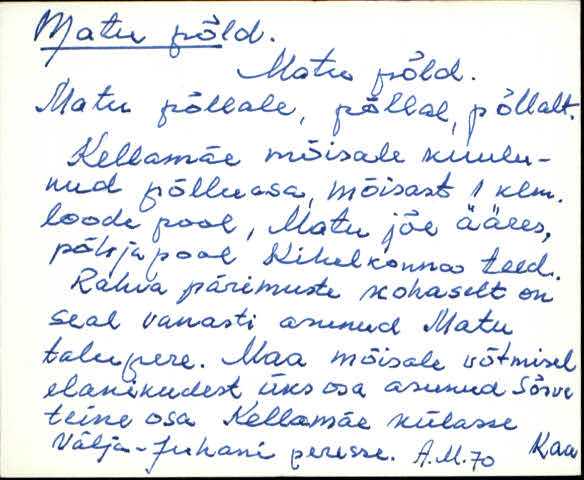 Matu põld.
Matu põld.
Matu põllale, põllal, põllalt.
Kellamäe mõisale kuulu-
nud põlluosa, mõisast 1 klm.
loode pool, Matu jõe ääres,
põhja pool Kihelkonna teed.
Rahva pärimuste kohaselt on
seal vanasti asunud Matu
talupere. Maa mõisale võtmisel
elanikudest üks osa asunud Sõrve
teine osa Kellamäe külasse
Välja-Juhani peresse. A.M.70 Kaa